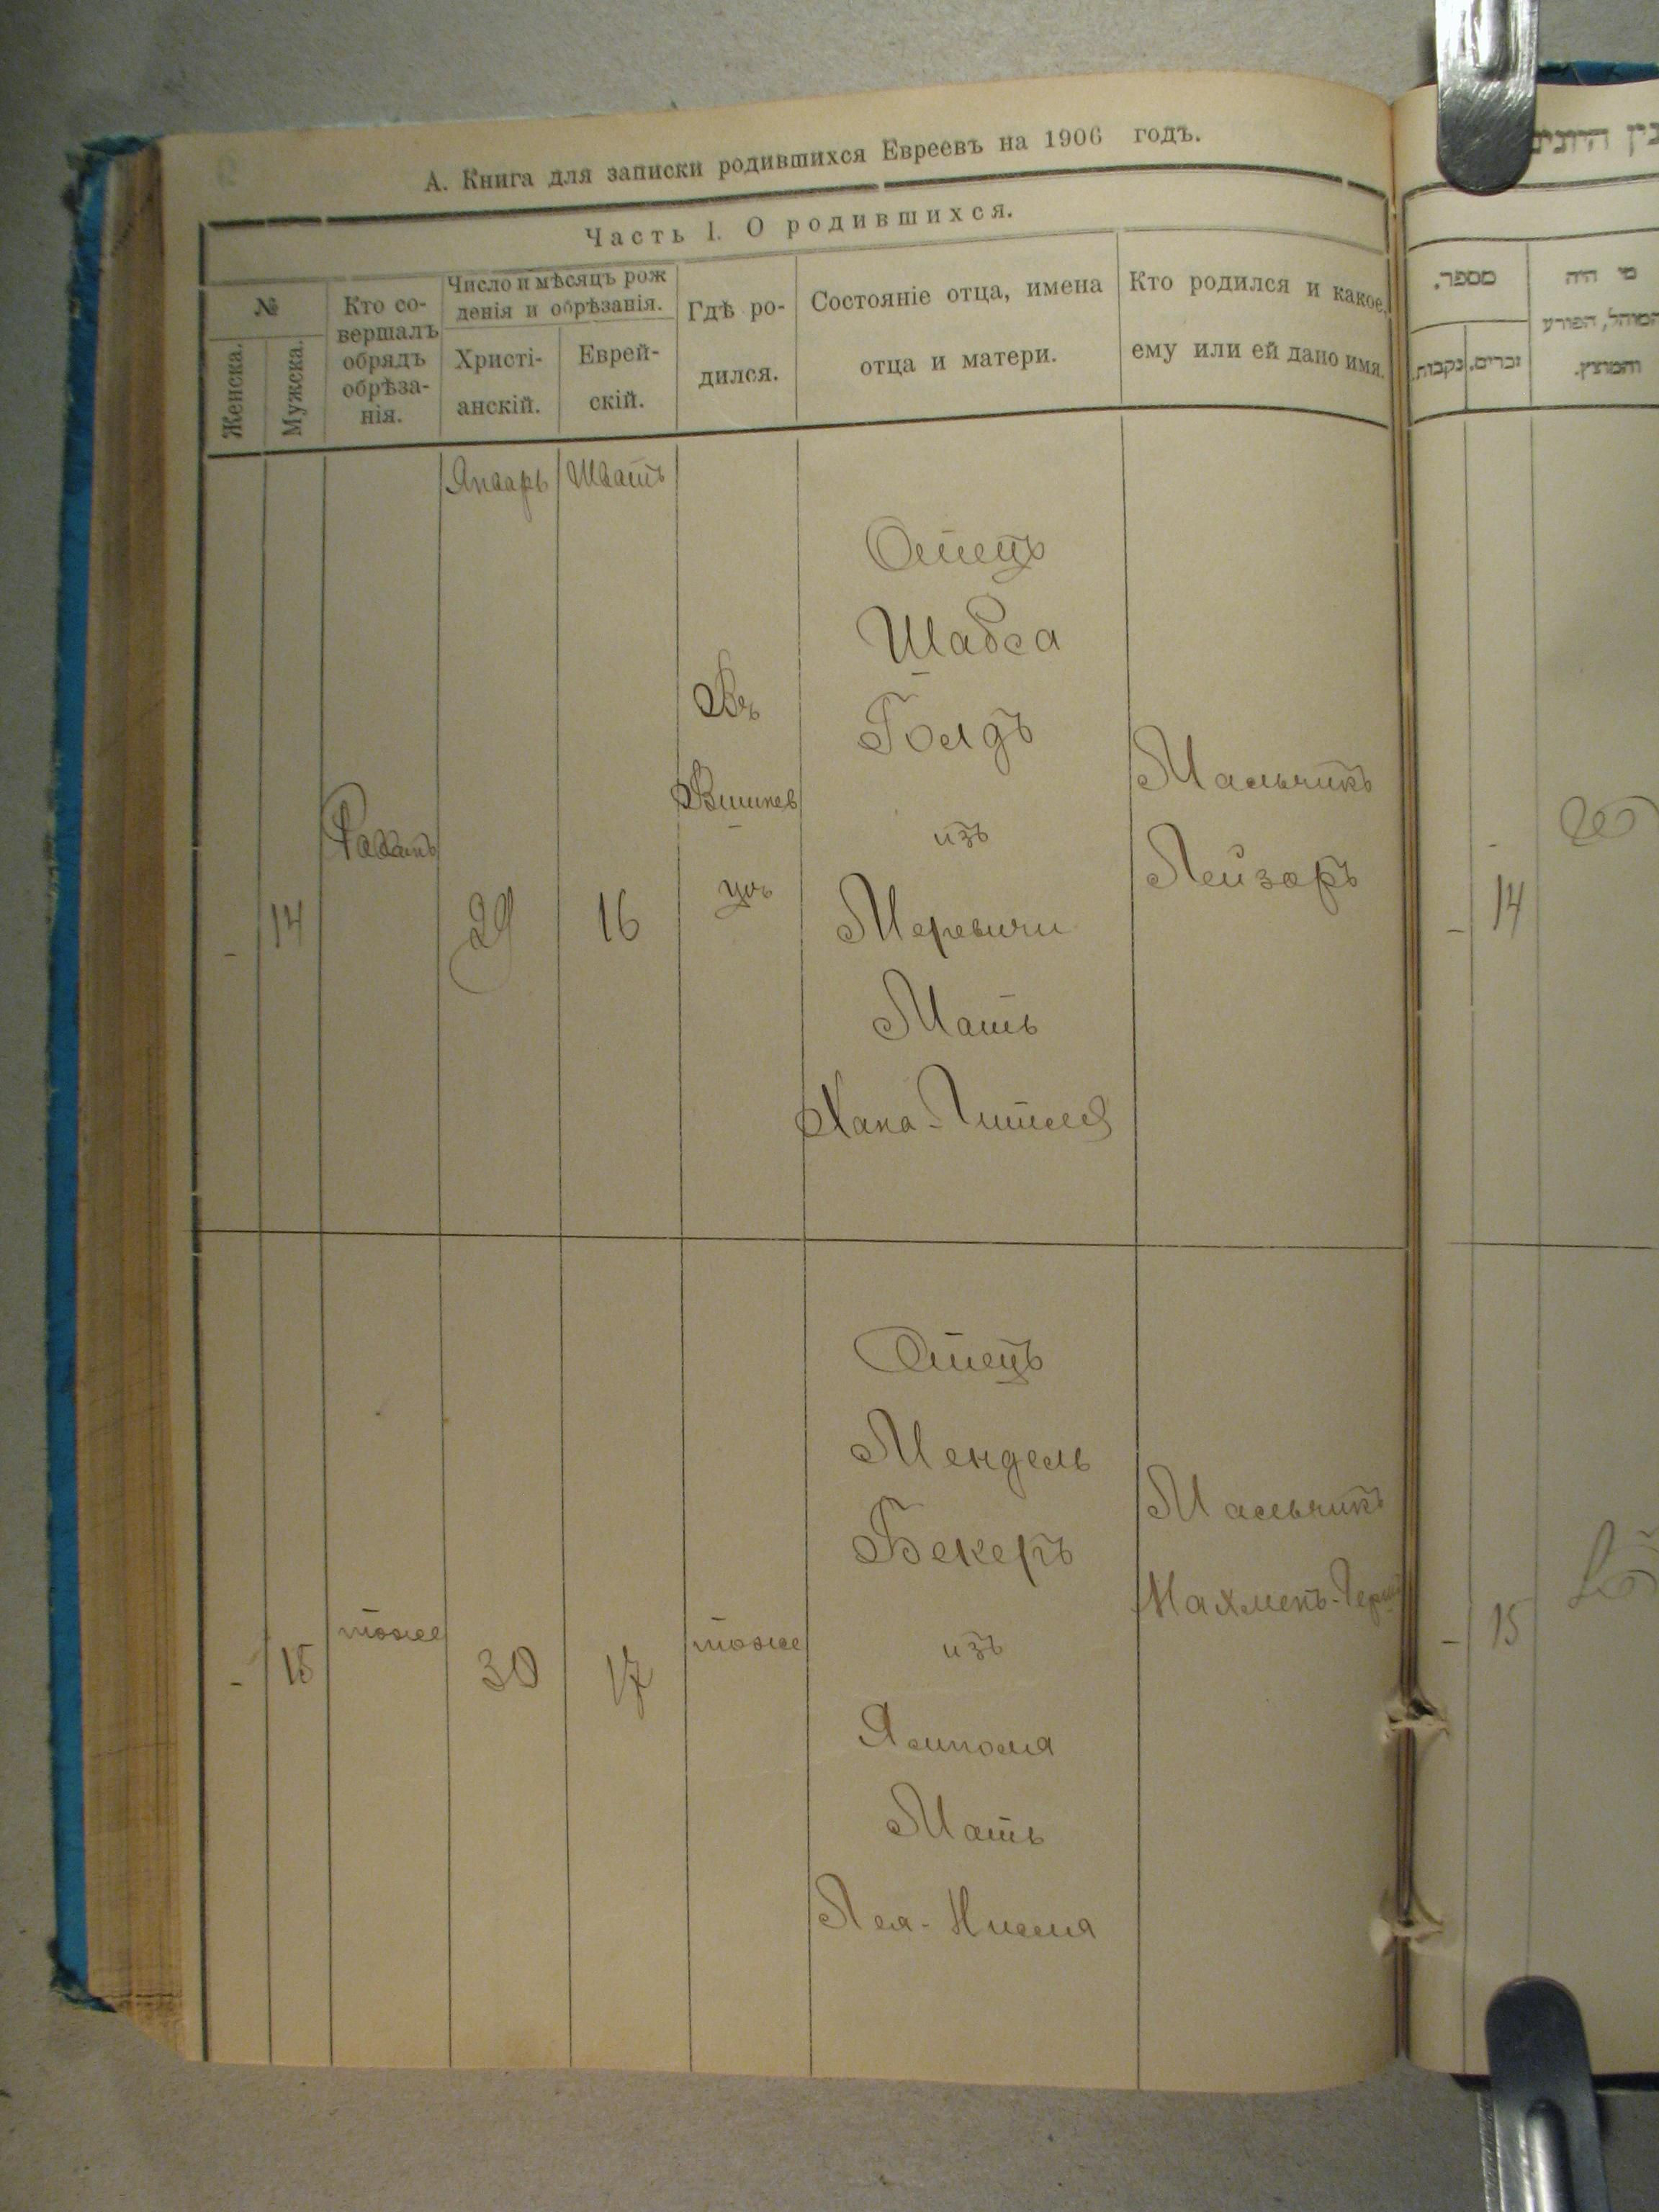 А. Книга для записки родившихся Евреевъ на 1906 годъ.
Часть I. О родившихся.
№
Женска.
Мужска.
Кто со-
вершалъ
обрядъ
обрѣза-
нія.
Число и мѣсяцъ рож
денія и обрѣзанія.
Христі-
анскій.
Еврей-
скій.
Гдѣ ро-
дился.
Состояніе отца, имена
отца и матери.
Кто родился и какое
ему или ей дано имя.
Январь
Шватъ
-
14
29
16
Въ
Вишнев
цѣ
Отецъ
Шабса
Голдъ
изъ
Мать
Мальчикъ
Лейзоръ
-
15
тоже
30
17
тоже
Отецъ
Мендель
Бекеръ
изъ
Ямполя
Мать
Лея-
Мальчикъ
מספר.
זכרים.
נקבות.
מי היה
המוהל, הפורע
והמוצץ.
- 14
- 15